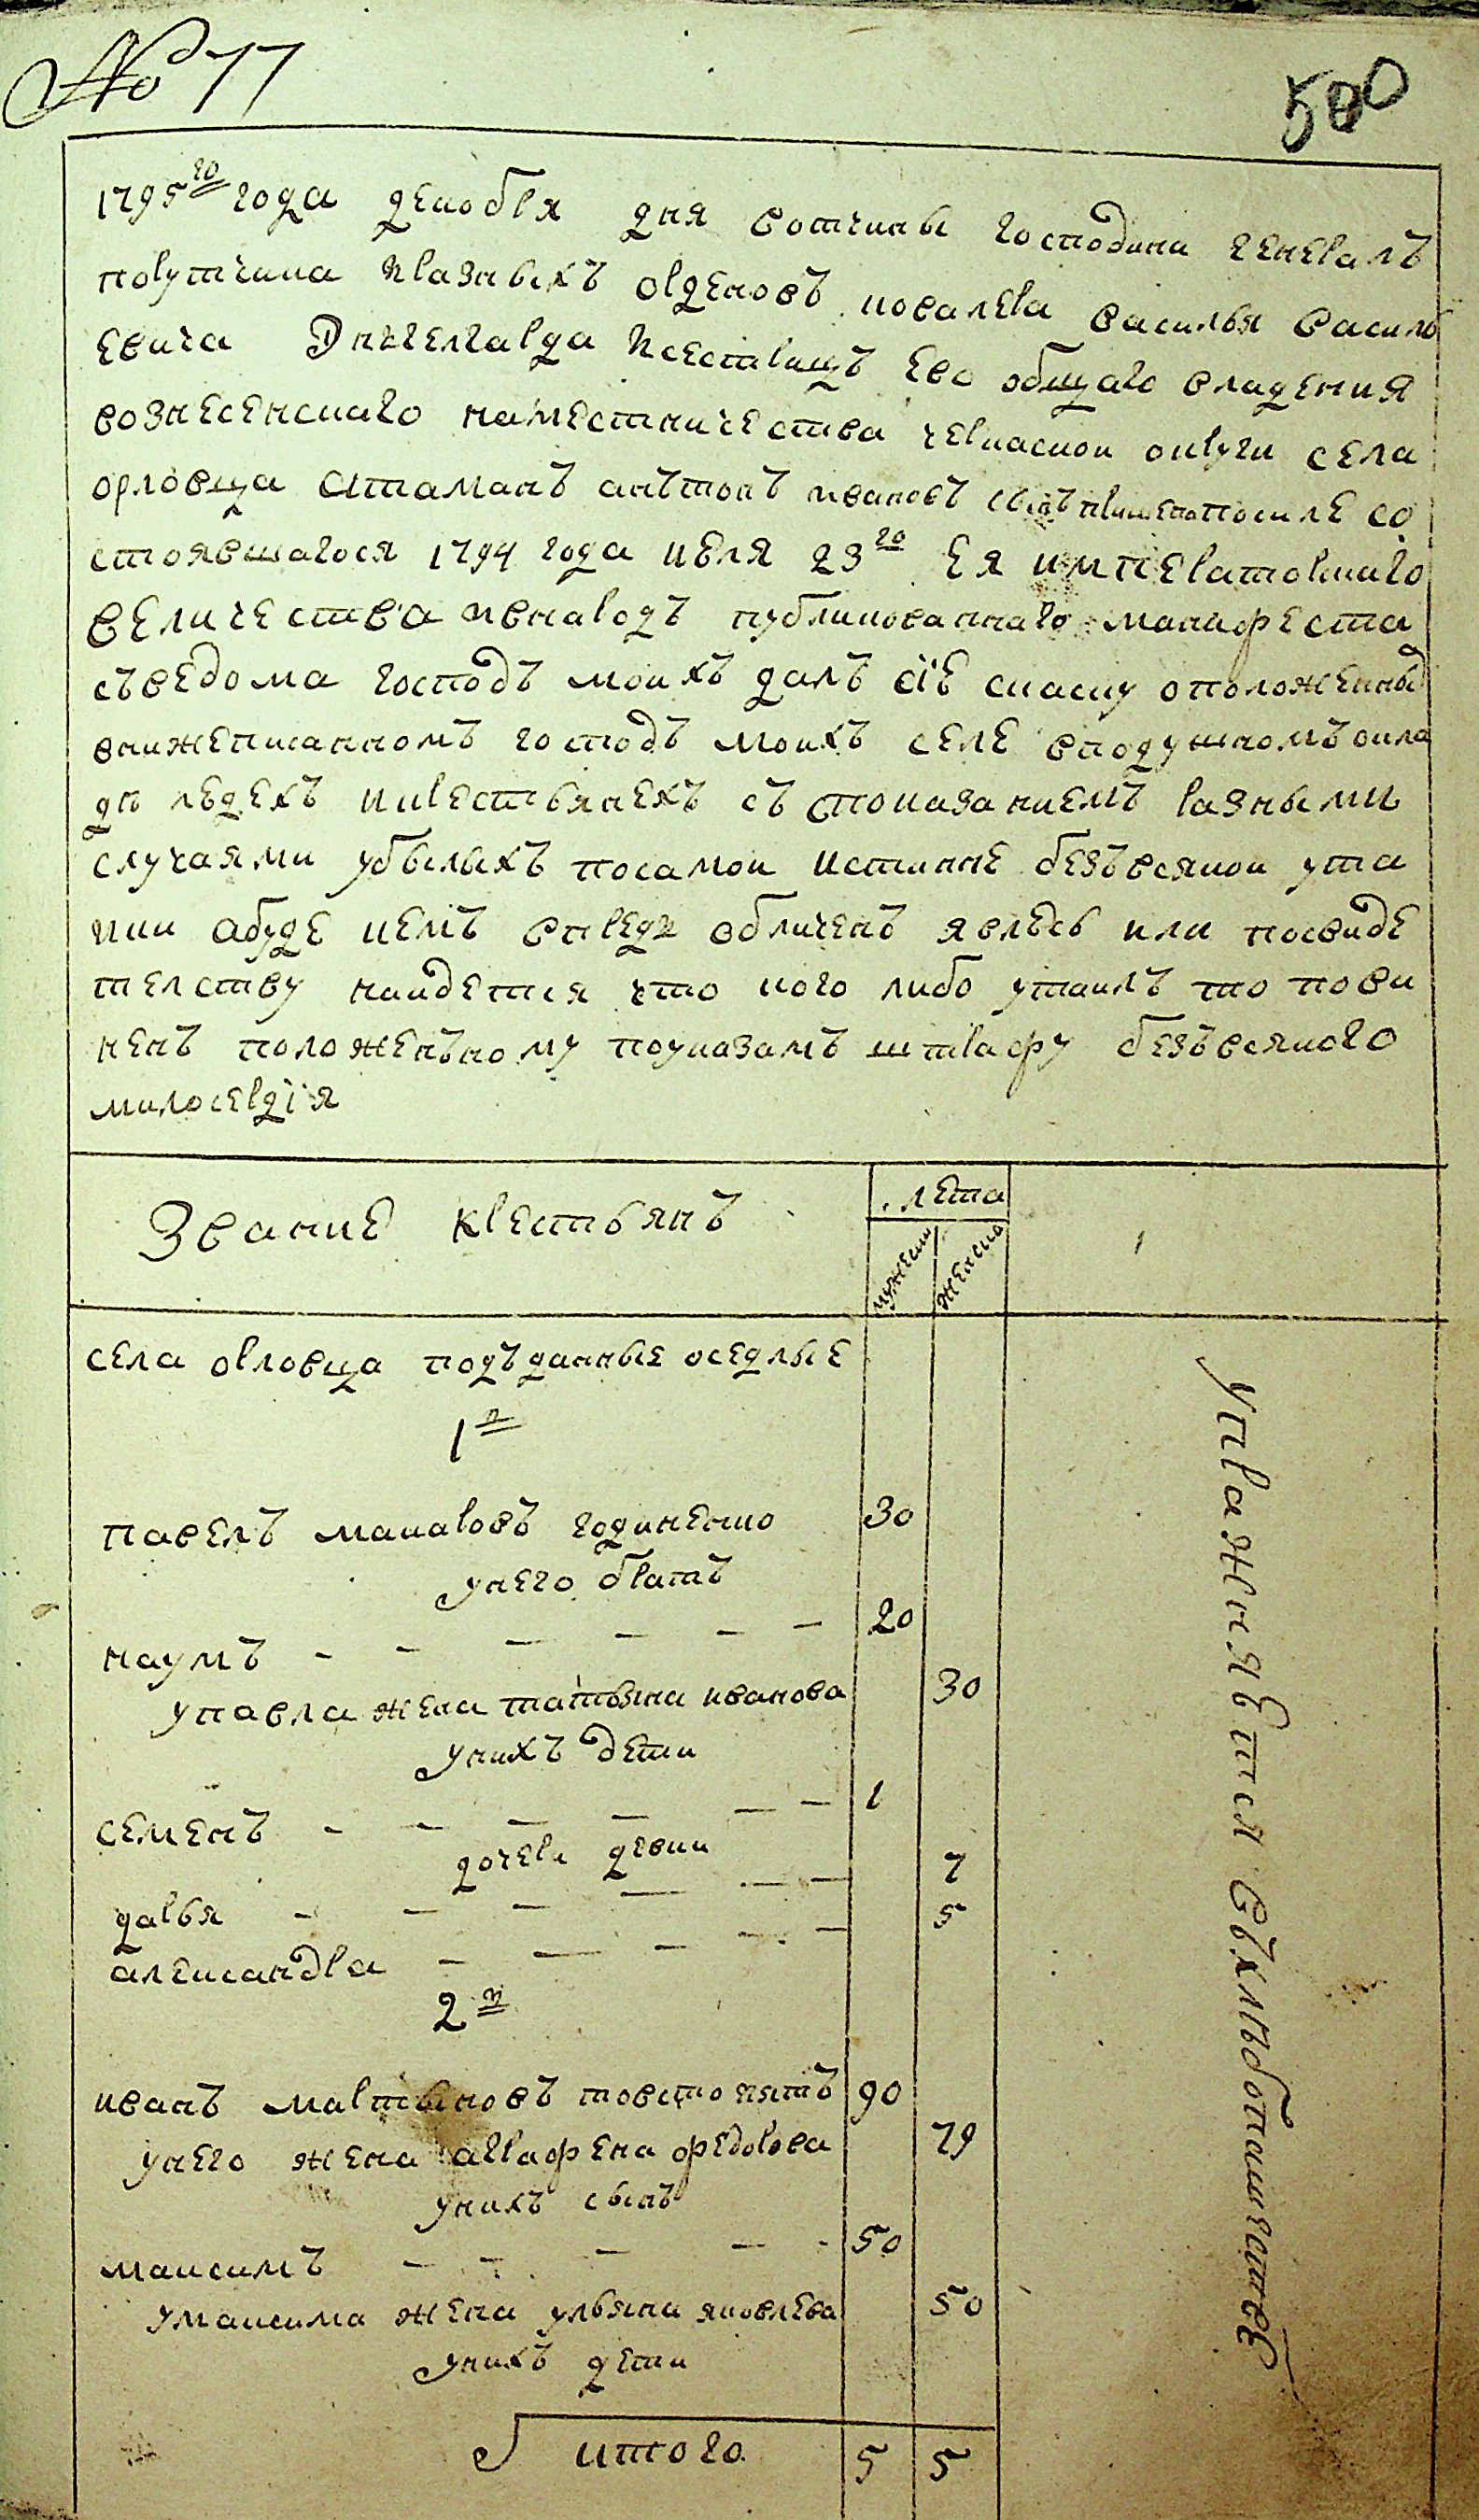 № 77
500
1795го года декобря дня вотчины господина генералъ
порутчика разныхъ орденовъ ковалера василья василь
евича Энгелгарда исестрицъ ево общаго владения
вознесенскаго наместничества черкаской округи села
орловца атаманъ антонъ ивановъ сынъ посиле со
стоявшагося 1794 года июля 23го ея императорскаго
величества ивнародъ публикованнаго манифеста
съведома господъ моихъ далъ сiе скаску оположенныхъ
внижеписанномъ господъ моихъ селе вподушномъ окла
дѣ людехъ икрестьянехъ съ показаниемъ разными
случаями убылыхъ посамои истинне безъвсякои ута
ики абуде кемъ впреди обличенъ явлюсь или посвиде
телству наидется что кого либо утаилъ то пови
ненъ положенъному поуказамъ штрафу безъвсякого
милосердiя
Звание крестьянъ
лета
мужеска
женско
села орловца подъданные оседлые
1й
павелъ макаровъ годиненко 30
унего братъ
наумъ - - - - - - 20
упавла жена татьяна иванова 30
унихъ дети
семенъ - - - - - - 1
дочери девки
дарья - - - - - - 7
александра - - - - - 5
2й
иванъ мартыновъ товстопятъ 90
унего жена аграфена федорова 79
унихъ сынъ
максимъ - - - - - 50
умаксима жена ульяна яковлева 50
унихъ дети
итого 5 5
упражняется вхлѣбопашестве